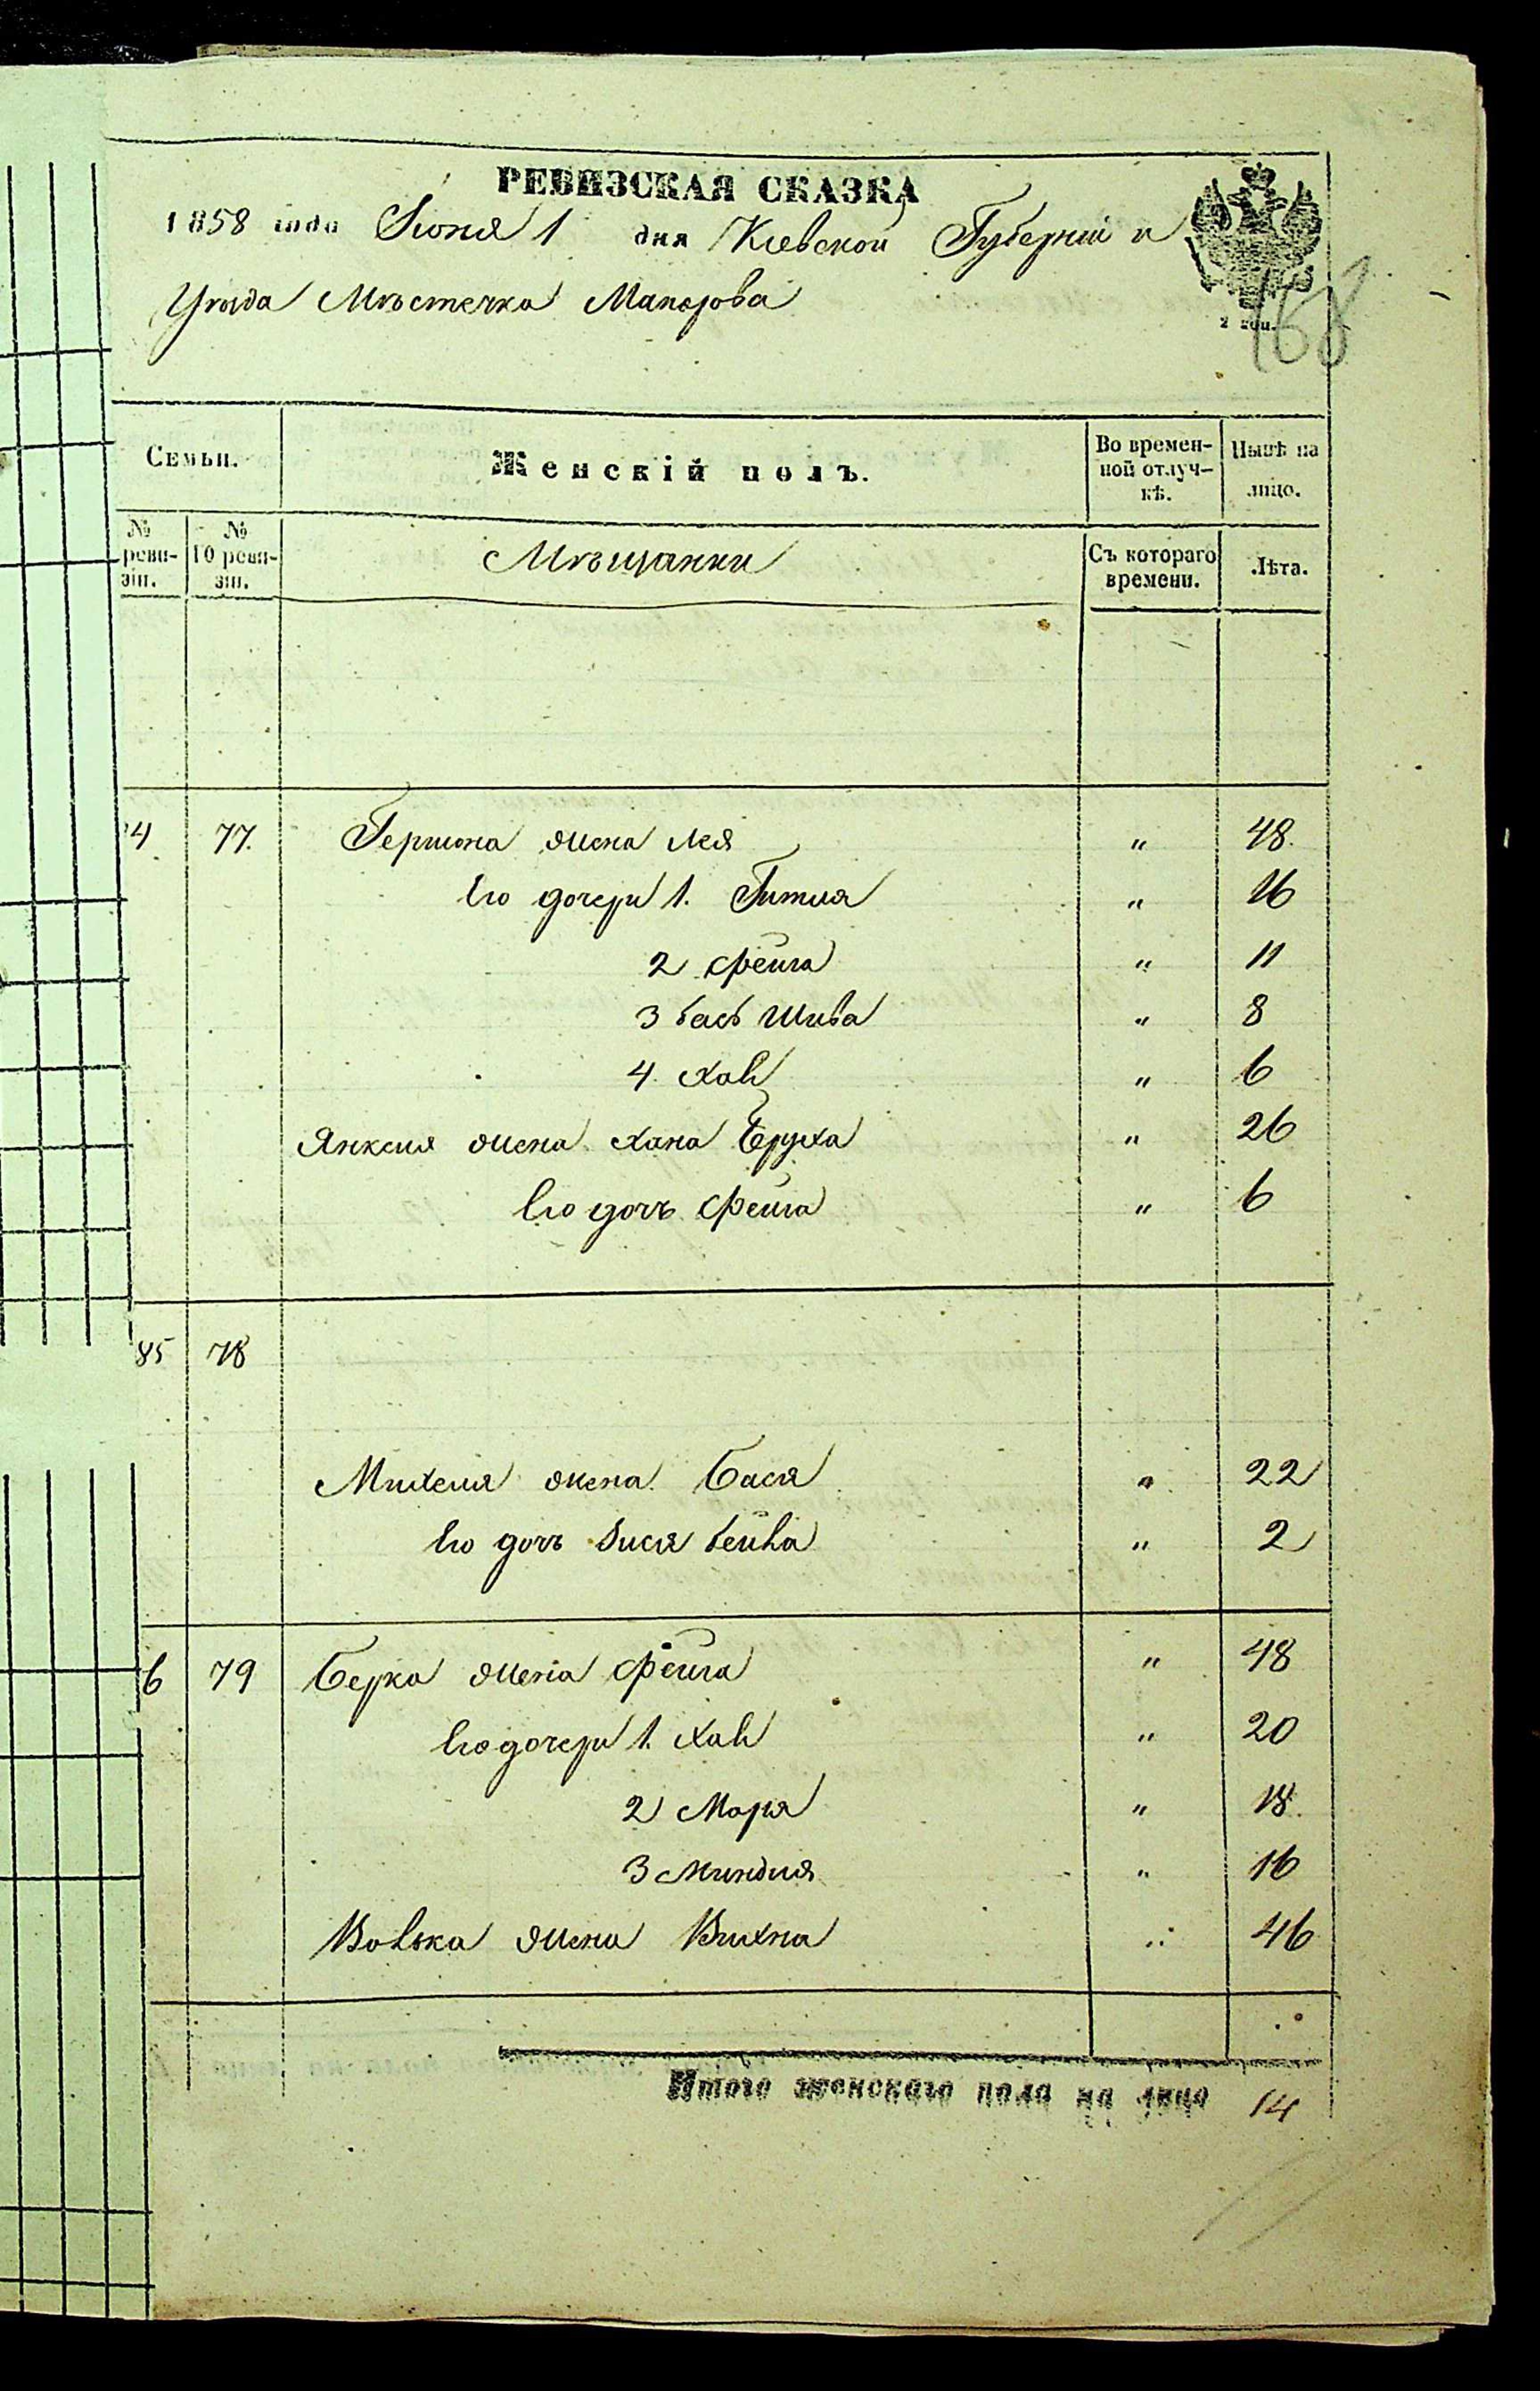 РЕВИЗСКАЯ СКАЗКА
1858 года Іюня 1 дня Кіевской Губерніи и
Уѣзда Мѣстечка Макарова
2 коп.
168
Семьи.
Женскій полъ.
Во времен-
ной отлуч-
кѣ.
Нынѣ на
лицо.
№
реви-
зіи.
№
10 реви-
зіи.
Мѣщанки
Съ котораго
времени.
Лѣта.
4 77. Гершона жена Лея " 48.
Его дочери 1. Гитля " 16
2 Фейга " 11
3 Бася Шива " 8
4. Хая " 6
Янкеля жена Хана Бруха " 26
Его дочь Фейга " 6
85 78
Михеля жена Бася " 22
Его дочь Бейла " 2
6 79 Берка жена Фейга " 48
Его дочери 1. Хая " 20
2 Маря " 18.
3 Миндля " 16
Волька жена Вихна " 46
Итого женскаго пола на лицо 14